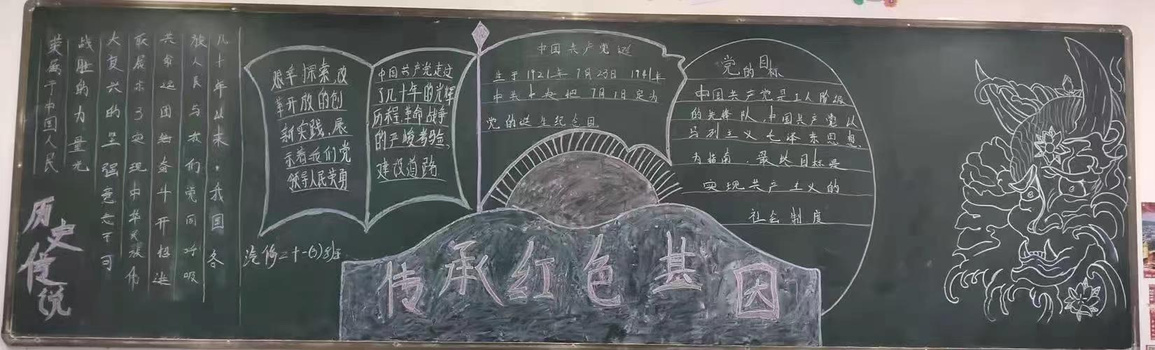 几十年以来,我国各
族人民与我们党同呼吸
共命运团结奋斗开拓进
取展示了实现中华民族伟
大复兴的
战胜的力量光
荣属于中国人民
历史传说
艰辛探索改
革开放的创
新实践,展
示着我们党
领导人民英勇
中国共产党走过
了几十年的光辉
历程,革命战争
的严峻考验,
建设道路
中国共产党诞
生于1921年7月23日1941年
中共中央把7月1日定为
党的诞生纪念日
党的目标
中国共产党是工人阶级
的先锋队,中国共产党以
马列主义毛泽东思想
为指南,最终目标是
实现共产主义的
社会制度
传承红色基因